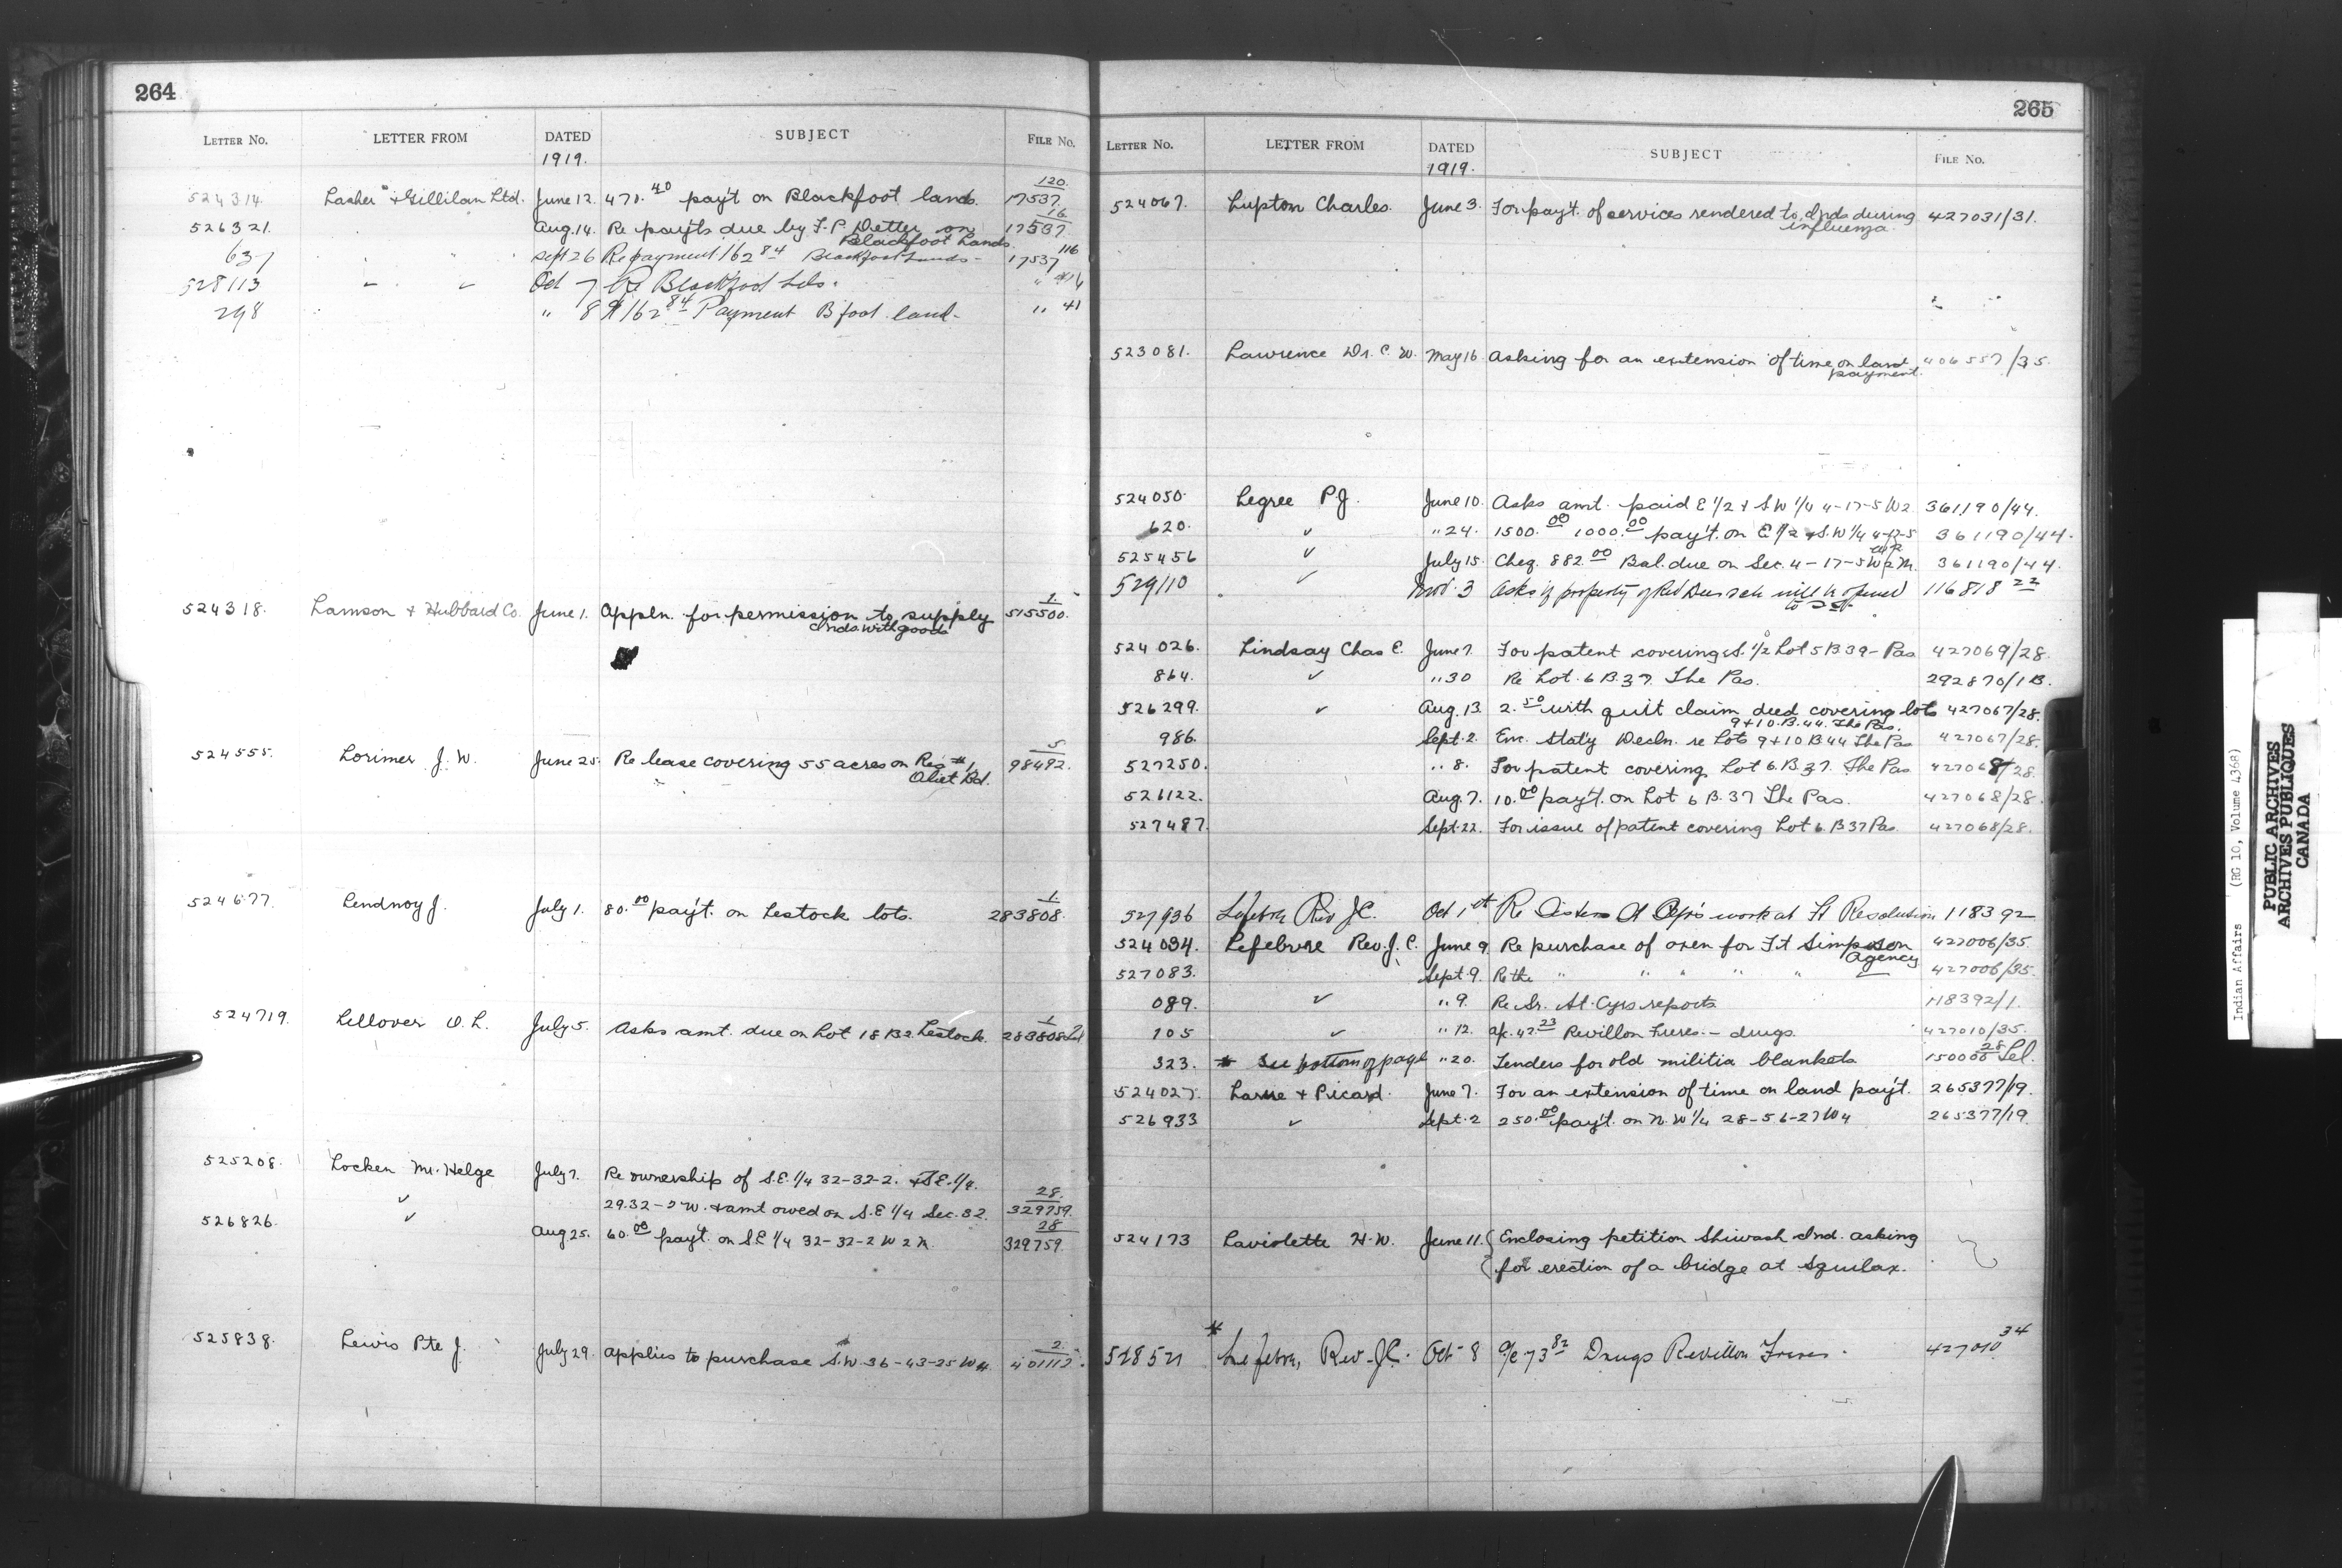 264
LETTER No. LETTER FROM DATED SUBJECT FILE No.
1919.
524314. Lasher & Gillilan Ltd. June 12. 471.40 pay't on Blackfoot lands. 120/17537.
526321. Aug. 14. Re pay'ts due by F. P. Detter on 16/17537
Blackfoot Lands.
637 " " Sept 26 Repayment 162 84 Blackfoot Lands - 17537 116
528113 Oct 7 Re Blackfoot Lds. "
298 " 8 $162 84 Payment B'foot land - " 41
524318. Lamson & Hubbard Co. June 1. Appln. for permission to supply 1/515500.
Inds. with goods
524555. Lorimer J. W. June 25. Re lease covering 55 acres on Reg #1, 5/98492.
524677. Lendnoy J. July 1. 80.00 pay't. on Lestock lots. 1/283808.
524719. Lellover O. L. July 5. Asks amt. due on Lot 18 B2. Lestock. 1/283808
525208. Locken Mr. Helge July 7. Re ownership of S.E. 1/4 32-32-2. & S.E. 1/4.
29.32-2 W. & amt owed on S.E 1/4 Sec. 32. 28./329759.
526826. Aug 25. 60.00 pay't. on S.E 1/4 32-32-2 W 2 M. 28/329759.
525838. Lewis Pte J. July 29. Applies to purchase S.W. 36-43-25 W4. 2./401112.
265
LETTER No. LETTER FROM DATED SUBJECT FILE No.
1919.
524067. Lupton Charles. June 3. For pay't. of services rendered to Inds during 427031/31.
influenza.
523081. Lawrence Dr. C. W. May 16 Asking for an extension of time on land 406557/35.
payment.
524050. Legree P.J. June 10. Asks amt. paid E 1/2 & S W 1/4 4-17-5 W2 361190/44.
620. " 24. 1500.00 1000.00 pay't. on E 1/2 & S.W 1/4 4-17-5 361190/44.
525456 July 15. Cheq. 882.00 Bal. due on Sec. 4-17-5 W 2 M. 361190/44.
529110 Nov. 3 Asks if property of Red Deer sch will be opened 116818 22
524026. Lindsay Chas E. June 7. For patent covering S. 1/2 Lot 5 B 39 - Pas. 427069/28.
864. " 30 Re Lot. 6 B.37. The Pas. 292870/1 B.
526299. Aug. 13. 2.50 with quit claim deed covering lots 427067/28.
9 & 10. B. 44. The Pas.
986. Sept. 2. Enc. Stat'y Decln. re Lots 9 & 10 B 44 The Pas 427067/28.
527250. " 8. For patent covering Lot 6. B. 37. The Pas 427068/28.
526122. Aug. 7. 10.00 pay't. on Lot 6 B. 37 The Pas. 427068/28.
527487. Sept. 22. For issue of patent covering Lot 6. B 37 Pas. 427068/28.
527936 Lefebvre Rev J.C. Oct 1st Re Sisters St Cyr's work at Ft Resolution 118392
524034. Lefebvre Rev. J. C. June 9. Re purchase of oxen for Ft Simpson 427006/35.
Agency
527083. Sept. 9. Re the " " " " " 427006/35.
089. " 9. Re Sr. St. Cyrs reports 118392/1.
105 " 12. a/c. 42.23 Revillon Freres. - drugs. 427010/35.
323. * See bottom of page " 20. Tenders for old militia blankets 150000 28
524027. Larue & Picard. June 7. For an extension of time on land pay't. 265377/19.
526933 Sept. 2 250.00 pay't. on N. W 1/4 28-56-27 W4 265377/19.
524173 Laviolette H. W. June 11. Enclosing petition Shiwash Ind. asking
for erection of a bridge at Squilax.
528521 * Lefebvre, Rev. J.C. Oct 8 a/c 73 82 Drugs Revillon Freres. 427010 34
Indian Affairs (RG 10, Volume 4368)
PUBLIC ARCHIVES
ARCHIVES PUBLIQUES
CANADA